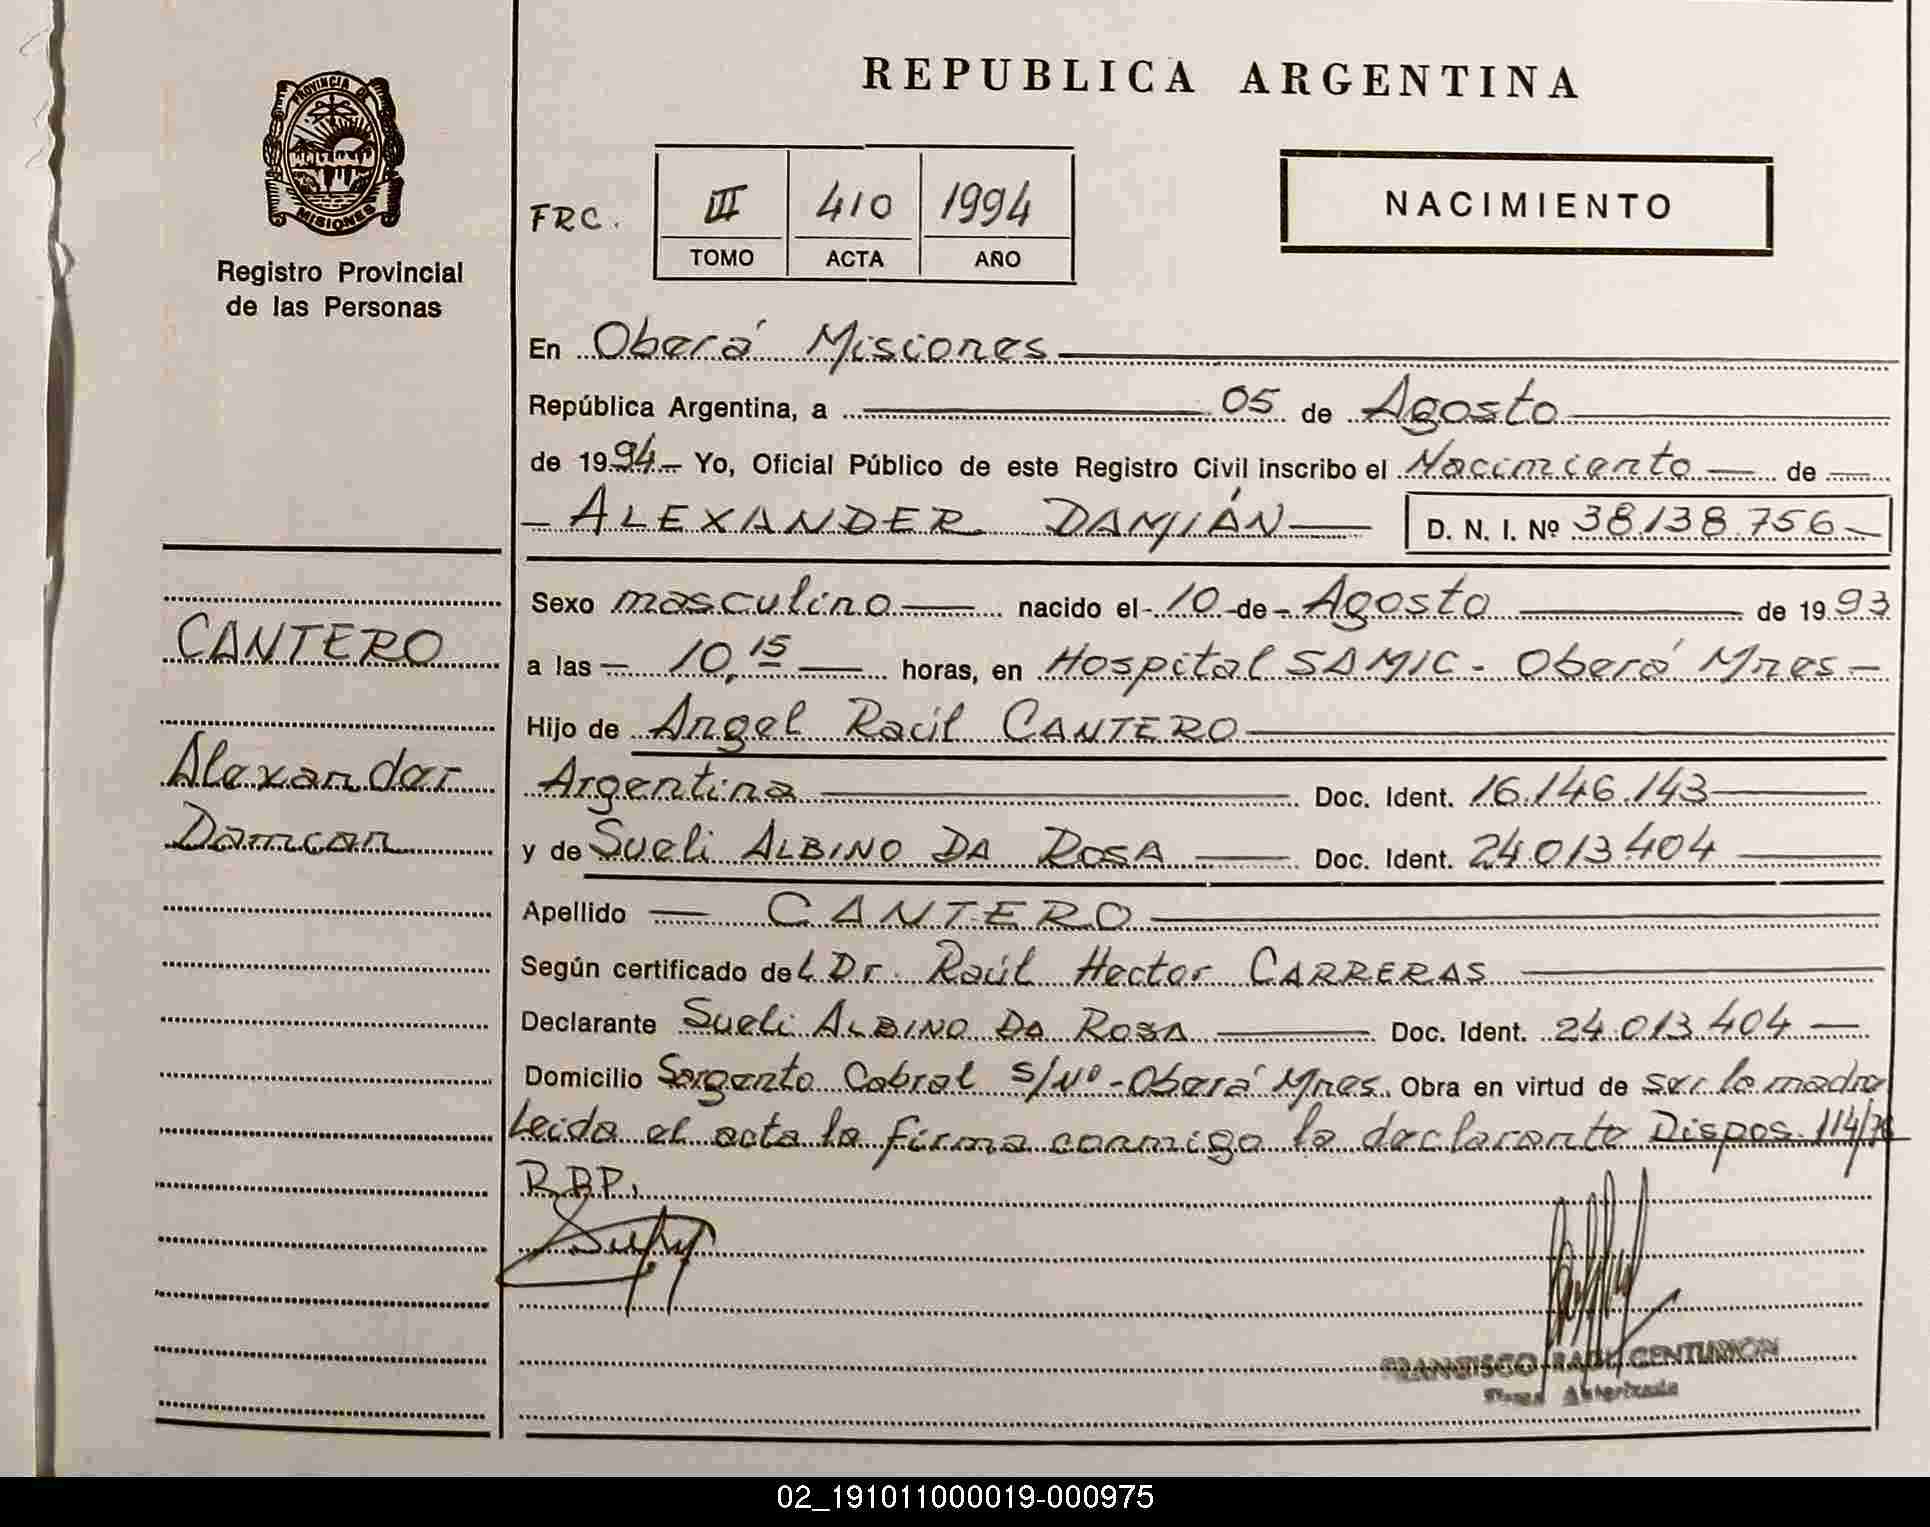 REPUBLICA ARGENTINA
PROVINCIA DE
MISIONES
Registro Provincial
de las Personas
FRC.
III 410 1994
TOMO ACTA AÑO
NACIMIENTO
En Oberá Misiones
República Argentina, a 05 de Agosto
de 1994 Yo, Oficial Público de este Registro Civil inscribo el Nacimiento de
ALEXANDER DAMIÁN D. N. I. Nº 38.138.756
Sexo masculino nacido el 10 de Agosto de 1993
a las 10,15 horas, en Hospital SAMIC - Oberá Mnes
Hijo de Angel Raúl CANTERO
Argentina Doc. Ident. 16.146.143
y de Sueli ALBINO DA ROSA Doc. Ident. 24.013.404
Apellido CANTERO
Según certificado del Dr. Raúl Hector CARRERAS
Declarante Sueli ALBINO DA ROSA Doc. Ident. 24.013.404
Domicilio Sargento Cabral S/Nº - Oberá Mnes. Obra en virtud de ser la madre
Leida el acta la firma conmigo la declarante Dispos. 114/
R.P.P.
CANTERO
Alexander
Damian
FRANCISCO RAUL CENTURION
Firma Autorizada
02_191011000019-000975